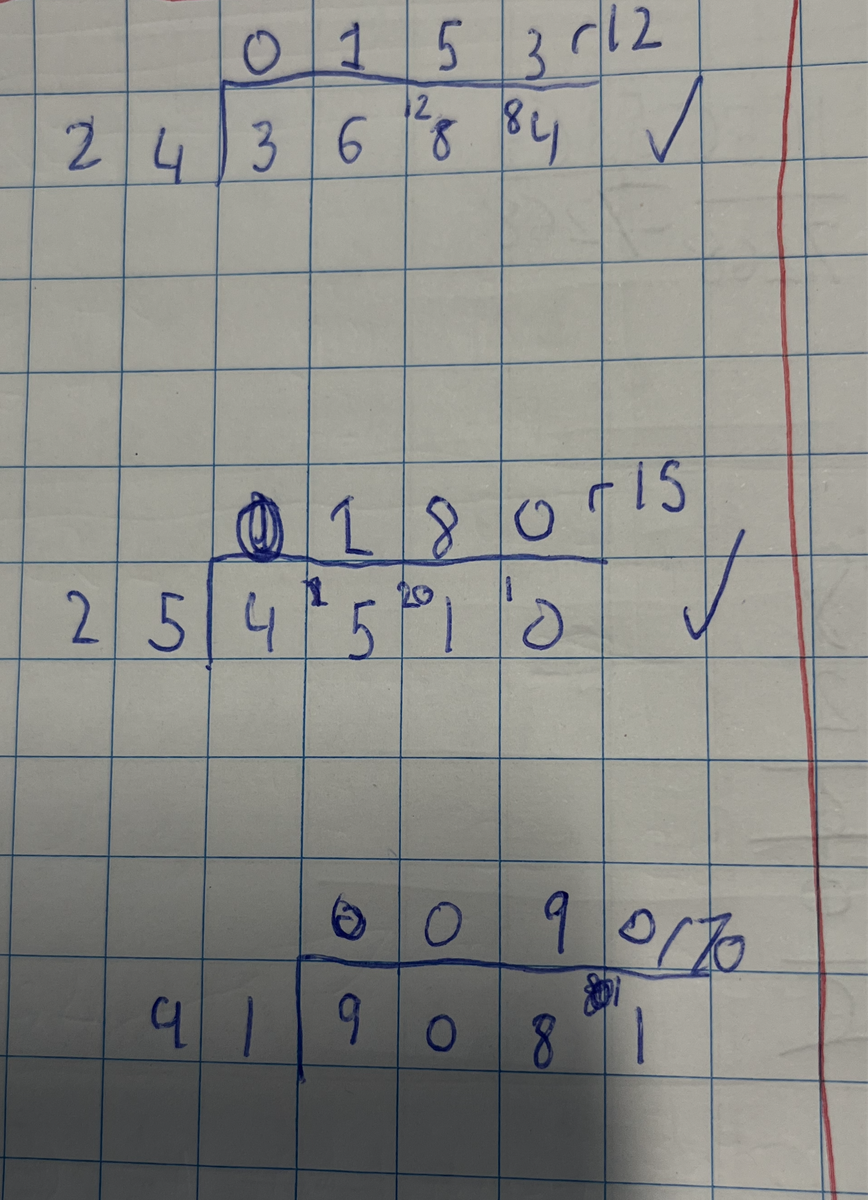 0 1 5 3 r12
2 4 3 6 12 8 8 4 ✓
1 8 0 r 15
2 5 4 5 20 1 1 0 ✓
0 0 9 0 r70
9 1 9 0 8 1